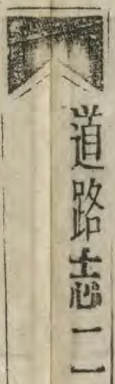 道路志二